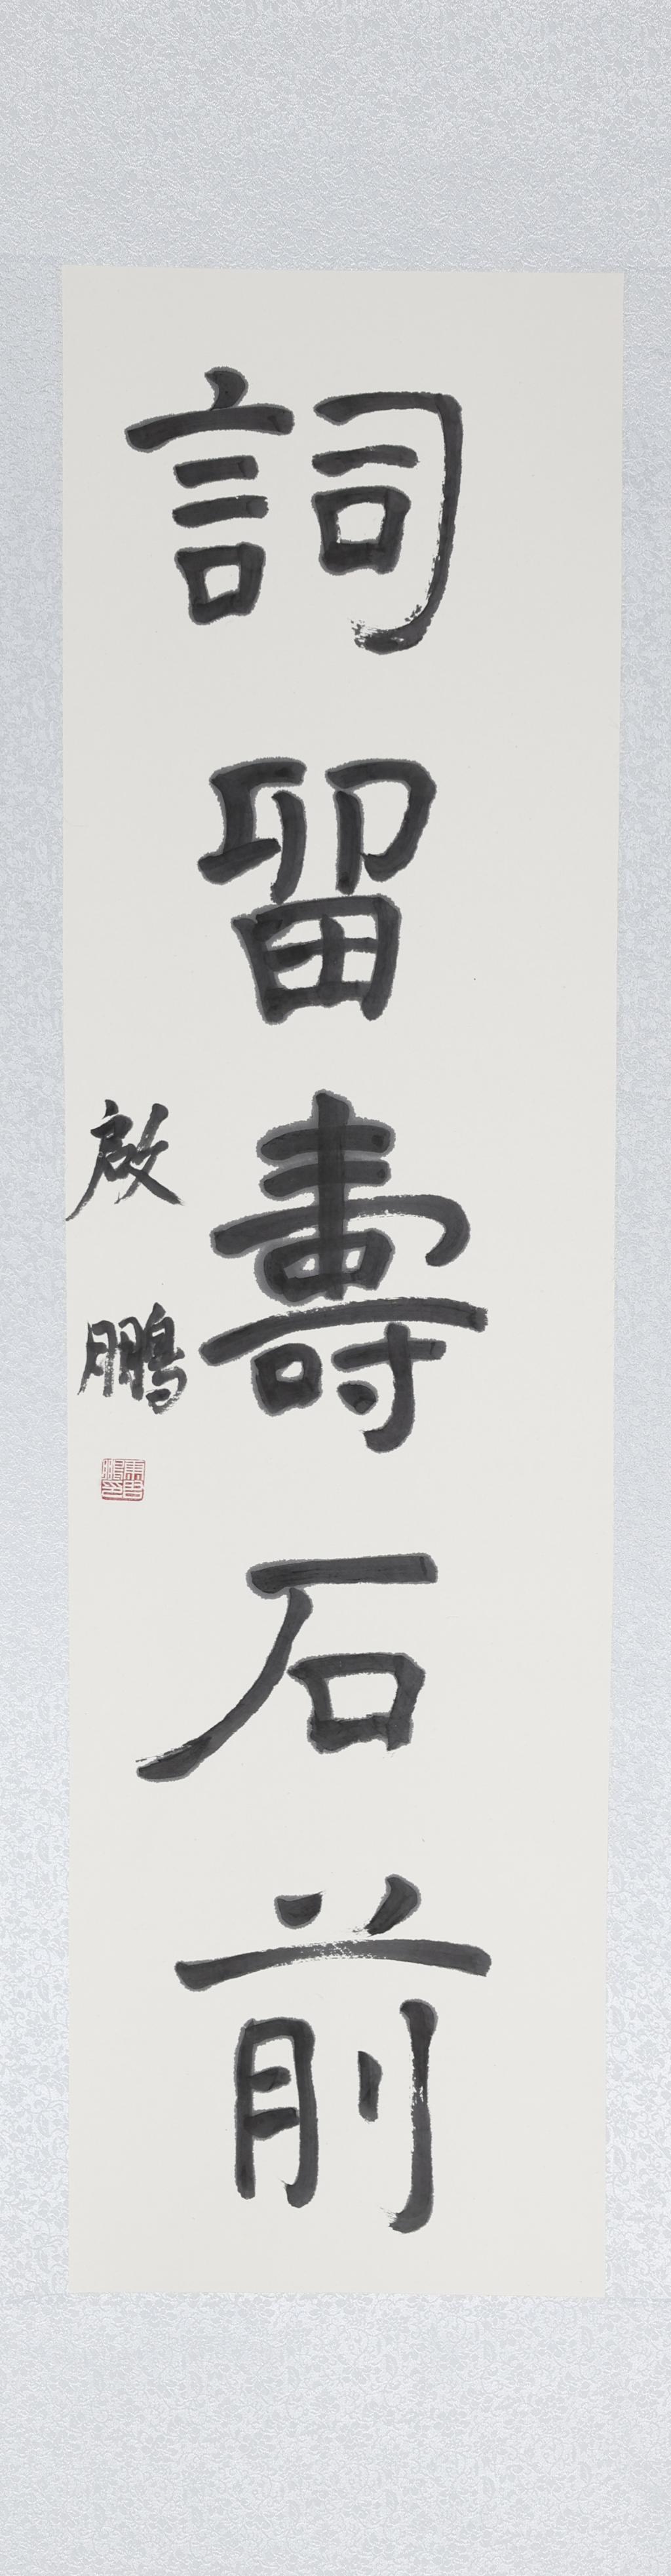 詞留壽石前
啟鵬